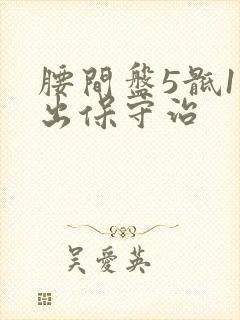 腰間盤5骶1
出保守治
吴愛英